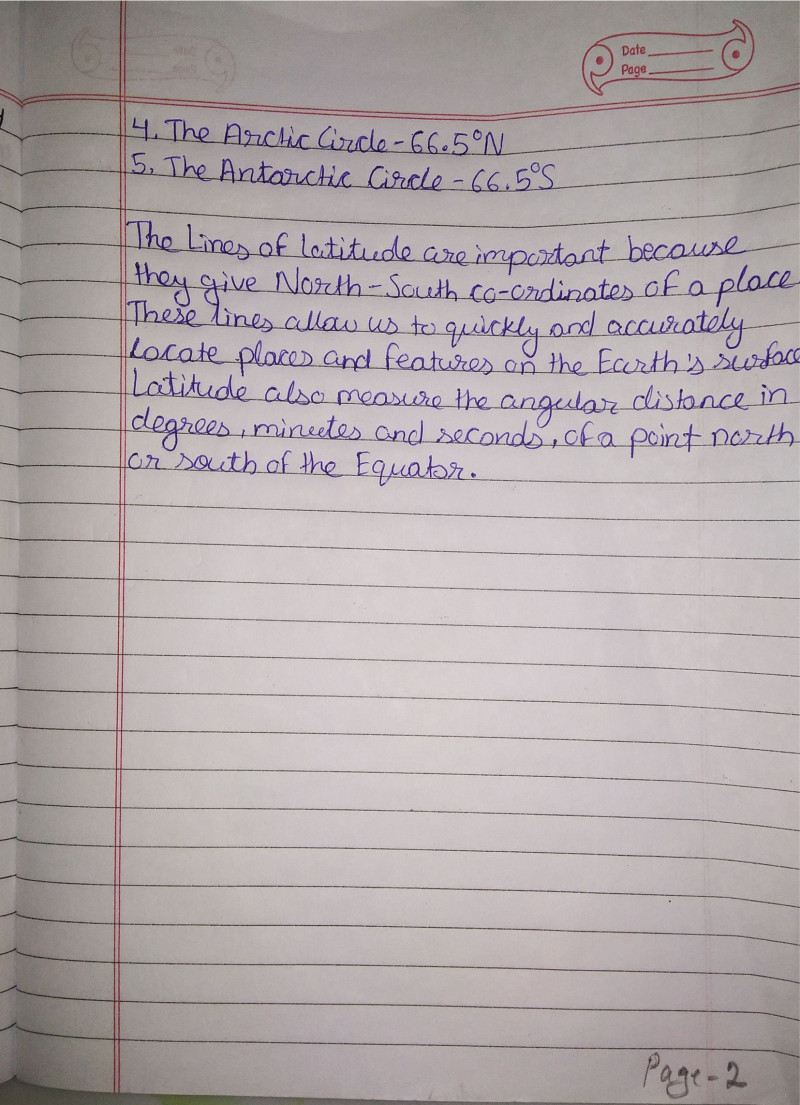 Date
Page
4. The Arctic Circle - 66.5°N
5. The Antarctic Circle - 66.5°S
The Lines of latitude are important because
they give North-South co-ordinates of a place
These lines allow us to quickly and accurately
Locate places and features on the Earth's surface
Latitude also measure the angular distance in
degrees, minutes and seconds, of a point north
or south of the Equator.
Page-2